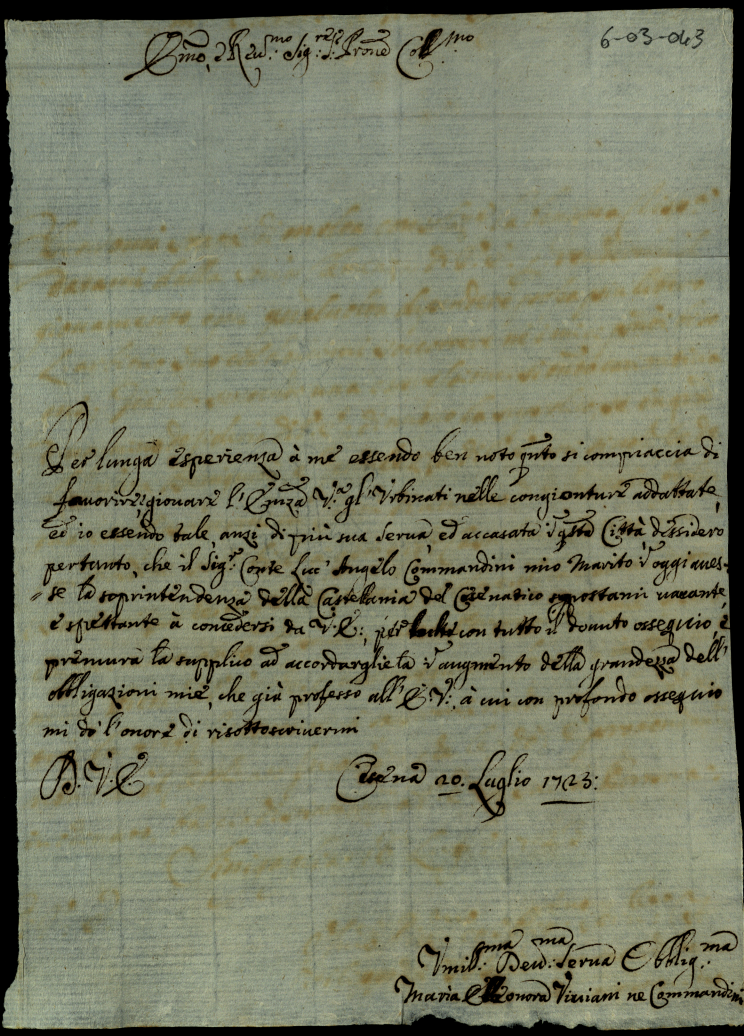 6-03-043
Emo, e Reu.mo Sig.re Sig.r Prone Col.mo
Per lunga esperienza à me essendo ben noto qnto si compiaccia di
fauorire, e giouare l'Emza V.a gl'Vrbinati nelle congionture addattate,
ed io essendo tale, anzi di più sua serua, ed accasata in qsta Città desidero
pertanto, che il Sig.r Conte Luc' Angelo Commandini mio Marito in oggi aues-
=se la soprintendenza della Castellania del Cesenatico vacante,
e spettante à concedersi da V: E:, perloche con tutto il douuto ossequio, e
premura la supplico ad accordargliela in augmento della grandezza dell'
obbligazioni mie, che già professo all' E: V:, à cui con profondo ossequio
mi dò l'onore di risottoscriuermi
D. V. E
Cesena 20. Luglio 1723:
Vmil.ma Deu:ma Serua Obblig.ma
Maria Elleonora Viuiani ne Commandini